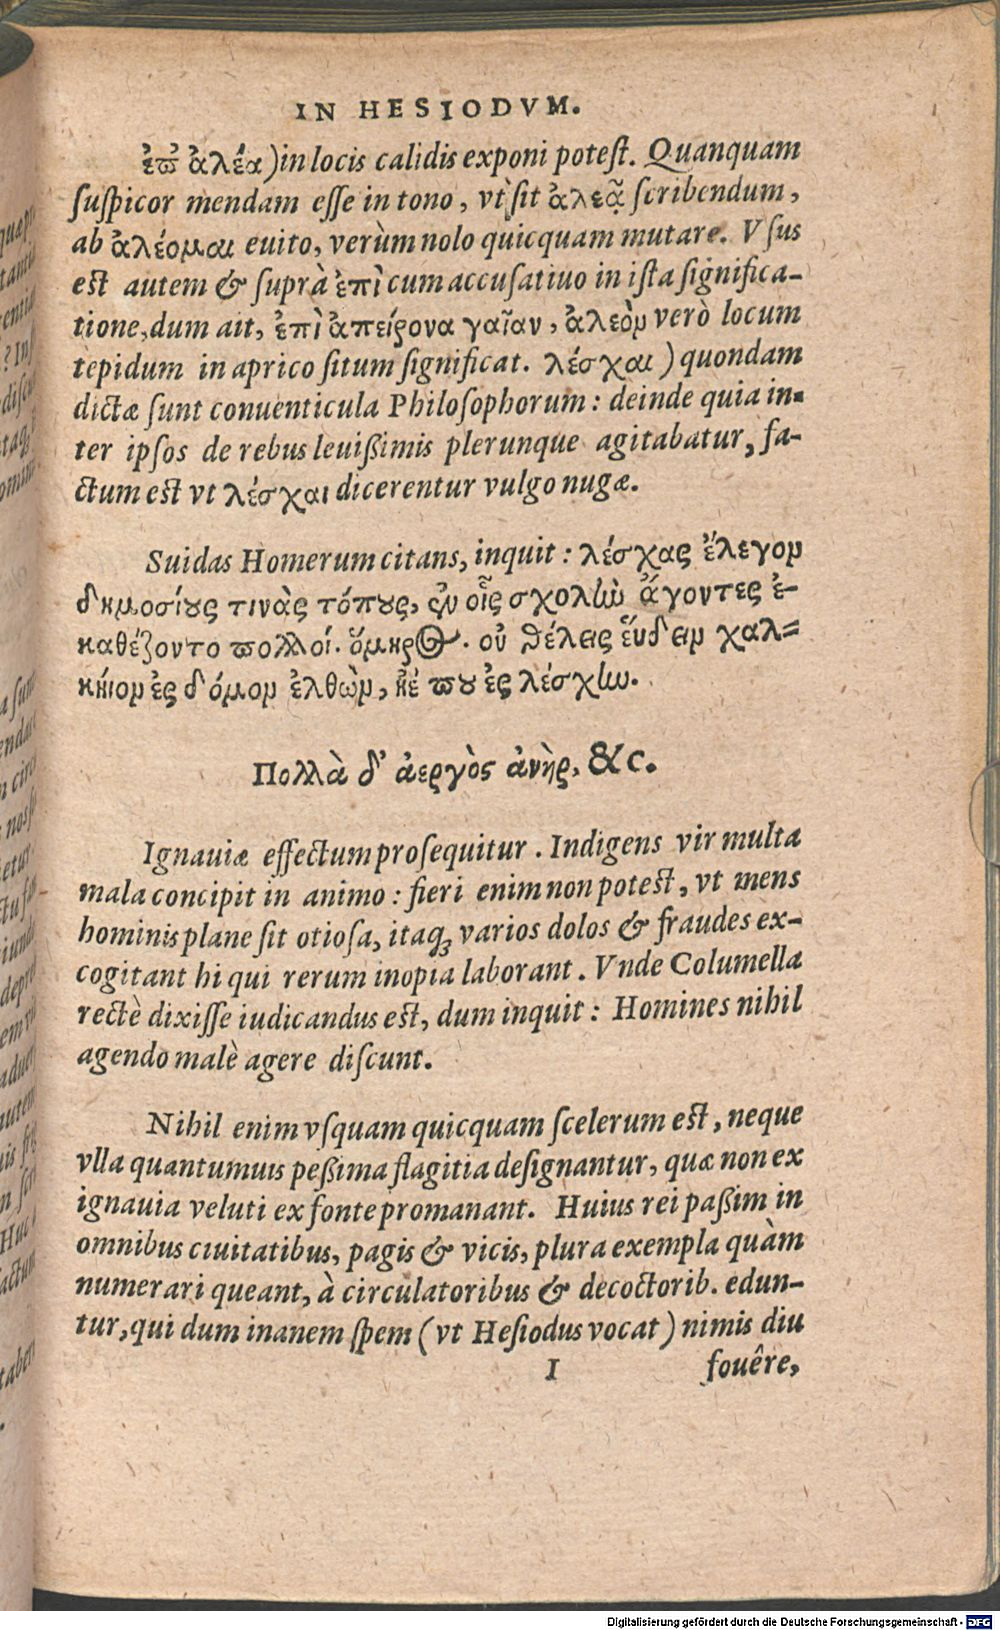 IN HESIODVM.
ἐπ' ἀλέα) in locis calidis exponi potest. Quanquam
suspicor mendam esse in tono, vt sit ἀλεᾷ scribendum,
ab ἀλέομαι euito, verùm nolo quicquam mutare. Vsus
est autem & suprà ἐπὶ cum accusatiuo in ista significa-
tione, dum ait, ἐπὶ ἀπείρονα γαῖαν, ἀλεὸν verò locum
tepidum in aprico situm significat. λέσχαι) quondam
dictæ sunt conuenticula Philosophorum: deinde quia in-
ter ipsos de rebus leuißimis plerunque agitabatur, fa-
ctum est vt λέσχαι dicerentur vulgo nugæ.
Suidas Homerum citans, inquit: λέσχας ἔλεγον
δημοσίους τινὰς τόπους, ἐν οἷς σχολὴν ἄγοντες ἐ-
καθέζοντο πολλοί. ὅμηρος. οὐ θέλεις εὕδειν χαλ-
κήιον ἐς δόμον ἐλθὼν, ἠέ που ἐς λέσχην.
Πολλὰ δ' ἀεργὸς ἀνὴρ, &c.
Ignauiæ effectum prosequitur. Indigens vir multa
mala concipit in animo: fieri enim non potest, vt mens
hominis plane sit otiosa, itaq; varios dolos & fraudes ex-
cogitant hi qui rerum inopia laborant. Vnde Columella
rectè dixisse iudicandus est, dum inquit: Homines nihil
agendo malè agere discunt.
Nihil enim vsquam quicquam scelerum est, neque
vlla quantumuis peßima flagitia designantur, quæ non ex
ignauia veluti ex fonte promanant. Huius rei paßim in
omnibus ciuitatibus, pagis & vicis, plura exempla quàm
numerari queant, à circulatoribus & decoctorib. edun-
tur, qui dum inanem spem (vt Hesiodus vocat) nimis diu
I fouêre,
Digitalisierung gefördert durch die Deutsche Forschungsgemeinschaft - DFG